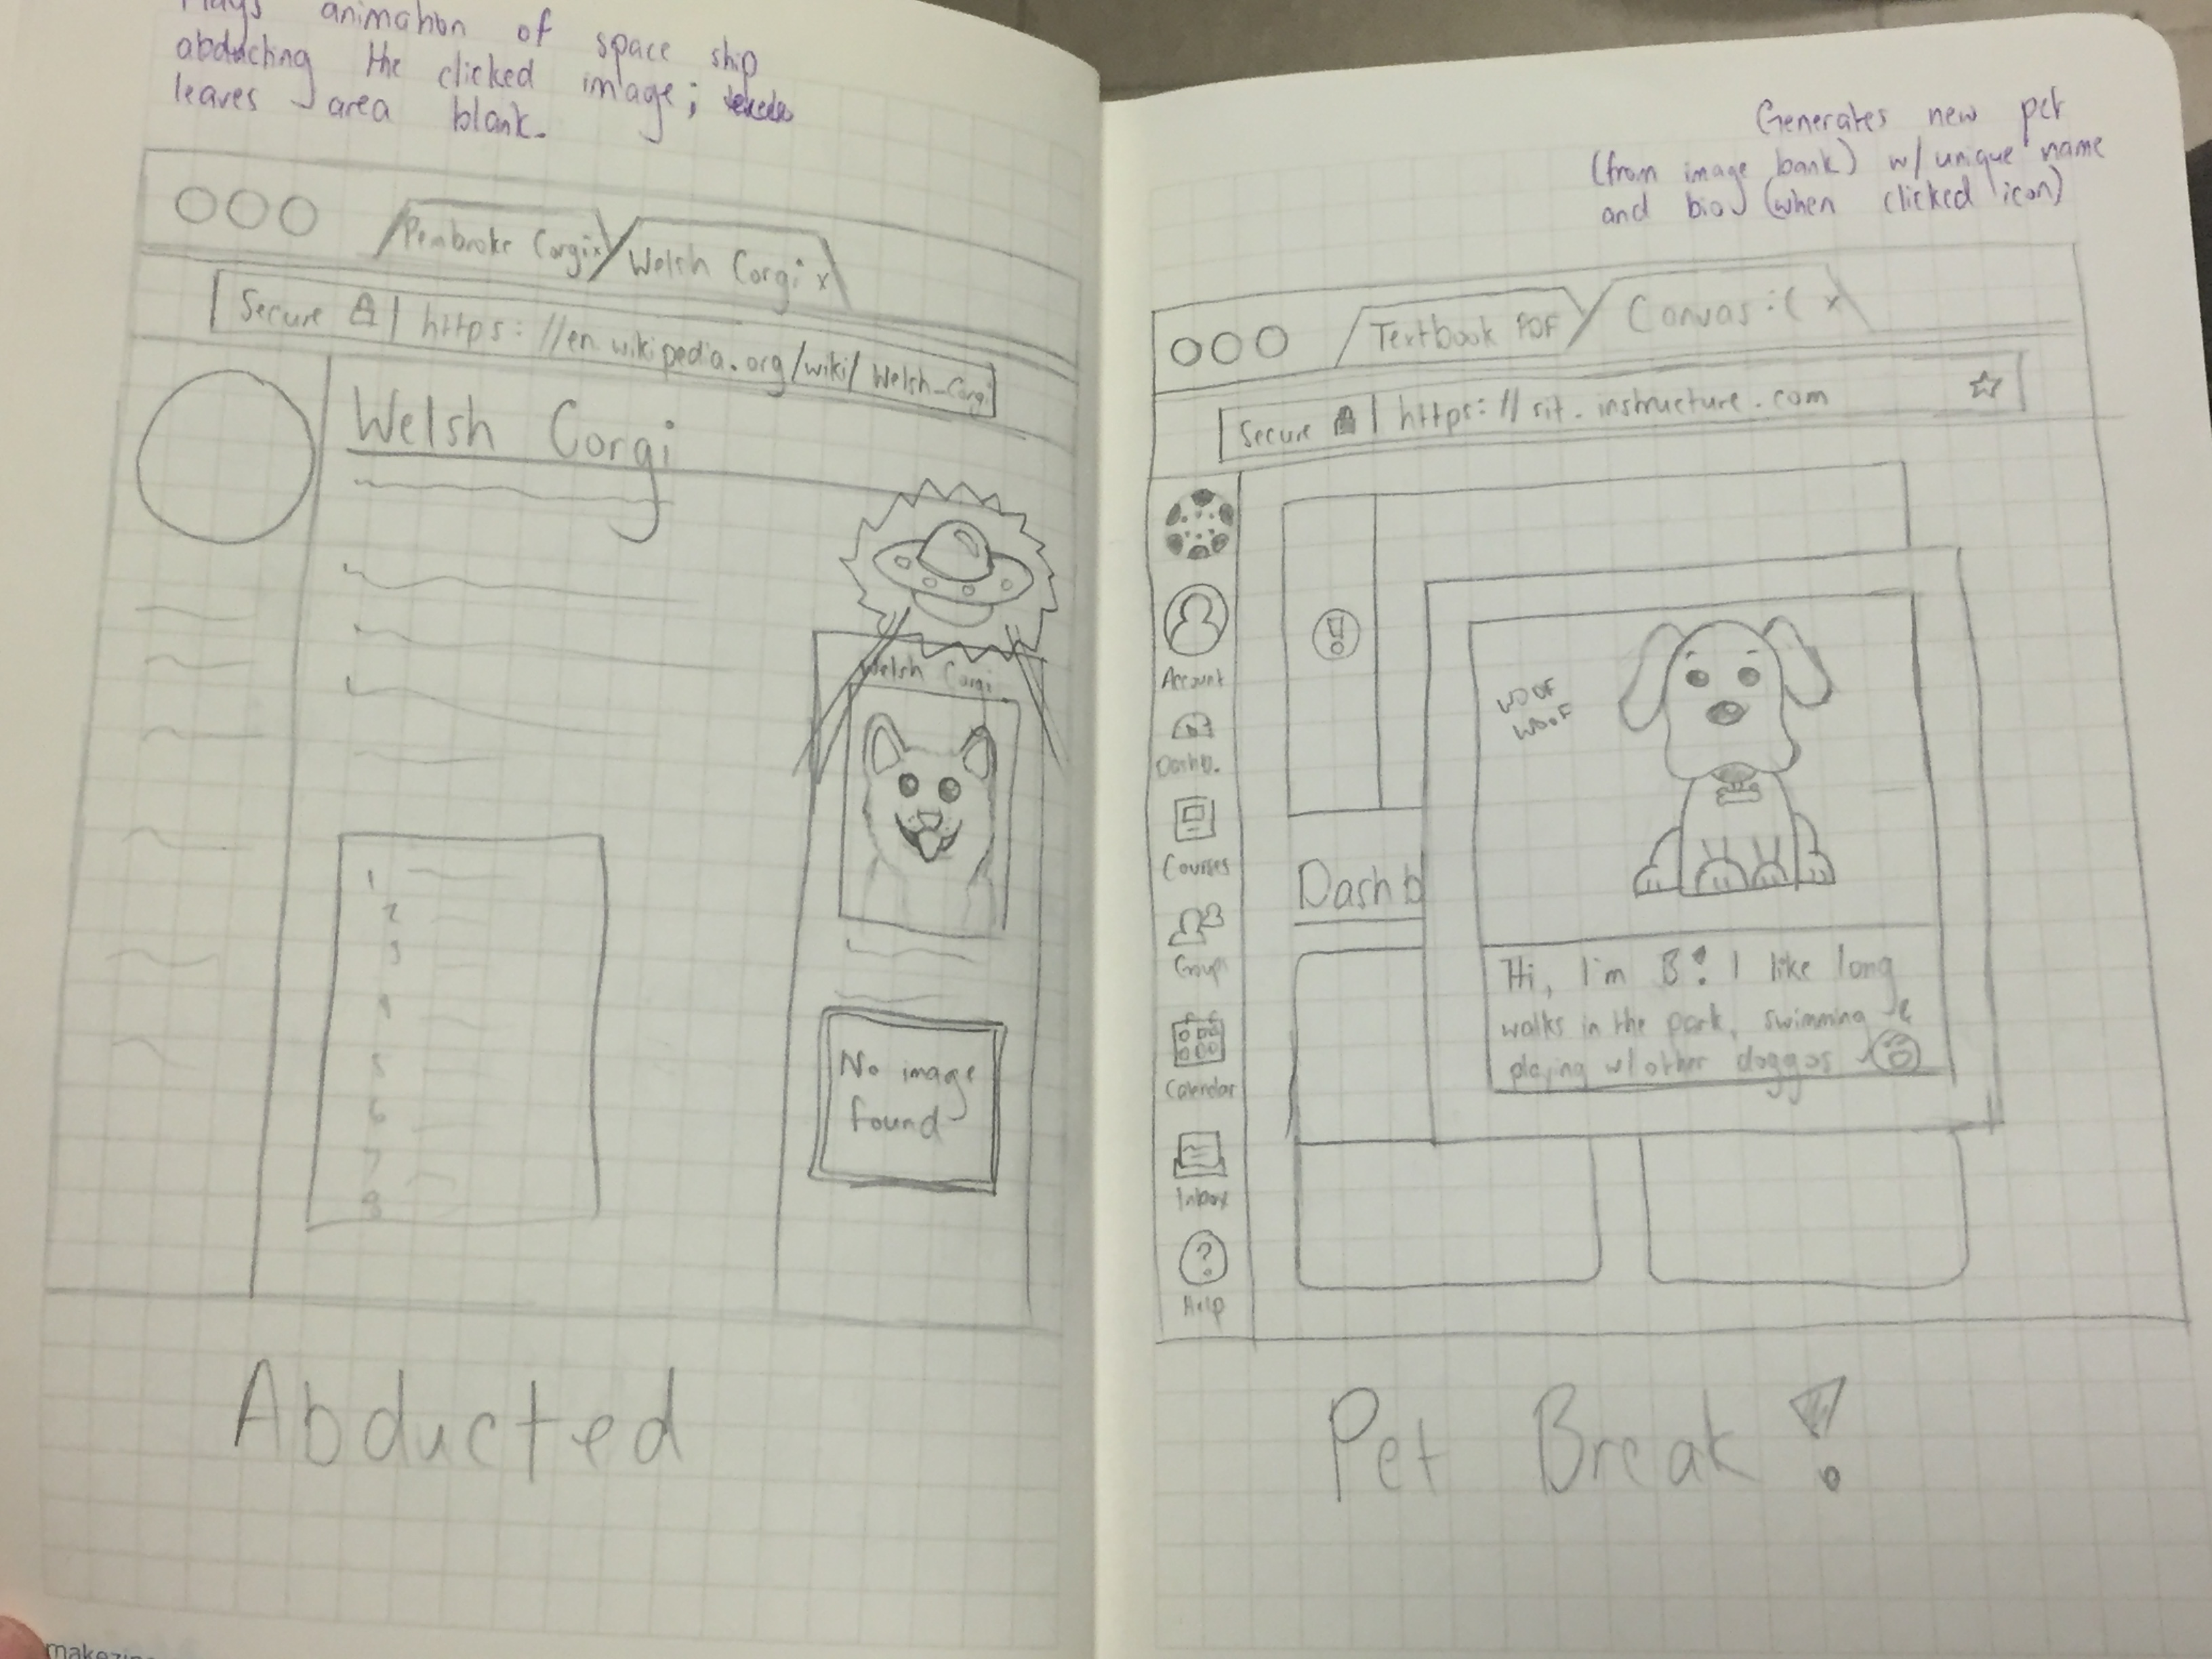 Plays animation of space ship
abducting the clicked image;
leaves area blank.
Pembroke Corgi x
Welsh Corgi x
Secure | https://en.wikipedia.org/wiki/Welsh_Corgi
Welsh Corgi
Welsh Corgi
1
2
3
4
5
6
7
8
No image
found
Abducted
makezine
Generates new pet
(from image bank) w/ unique name
and bio (when clicked icon)
Textbook PDF
Canvas :( x
Secure | https://sit.instructure.com
Account
Dashb.
Courses
Groups
Calendar
Inbox
?
Help
!
Dashb
WOOF
WOOF
Hi, I'm B! I like long
walks in the park, swimming &
playing w/ other doggos
Pet Break!